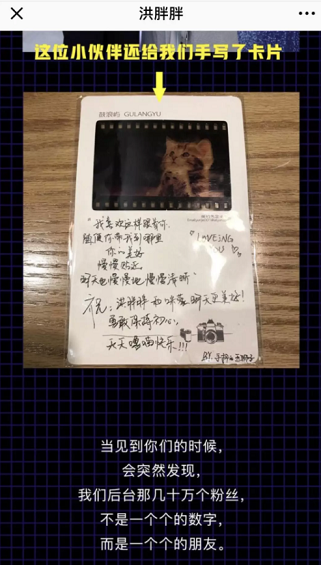 洪胖胖
这位小伙伴还给我们手写了卡片
鼓浪屿 GULANGYU
"我喜欢这样跟着你
随便你带我到哪里
你的美好
慢慢贴近
明天也慢慢地慢慢清晰"
LOVEING
祝：洪胖胖和咪蒙明天更美好!
勇敢保持初心,
天天嘻嘻快乐!!!
BY.
当见到你们的时候，
会突然发现，
我们后台那几十万个粉丝，
不是一个个的数字，
而是一个个的朋友。